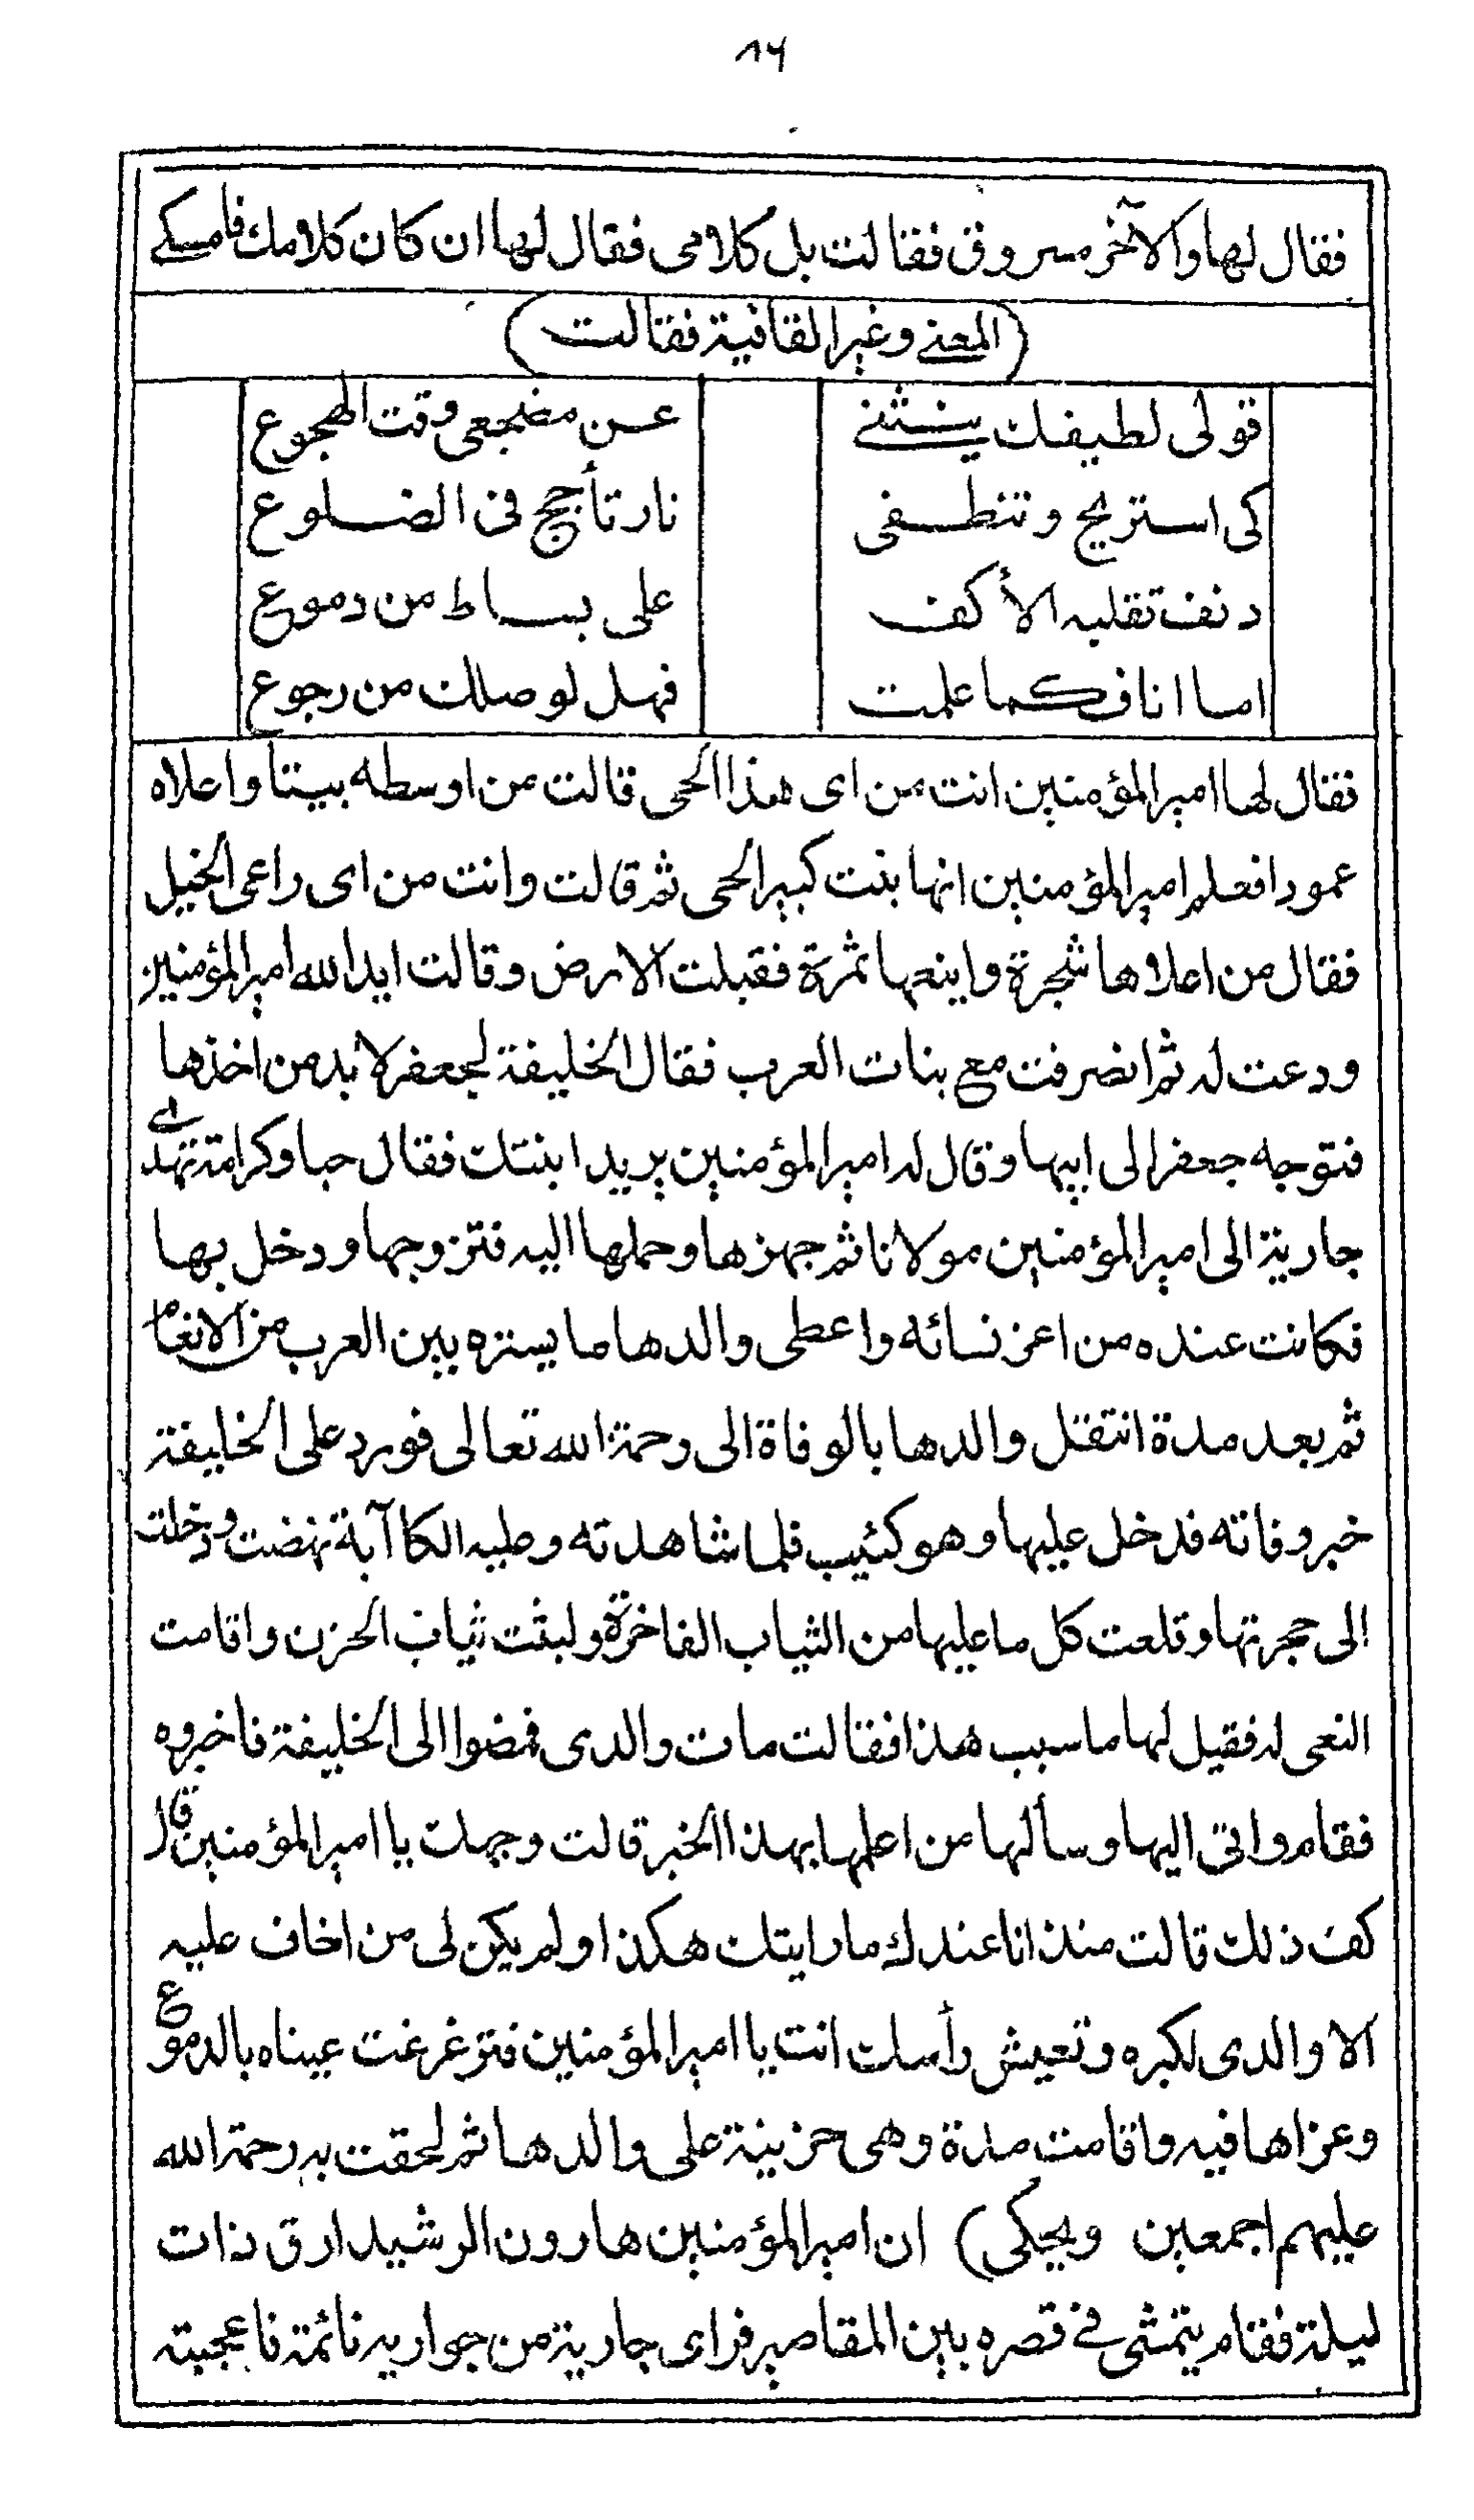 ١٤
فقال لها والآخر مسروق فقالت بل كلامى فقال لها ان كان كلامك فامسكى
(المعنى وغير القافية فقالت)
قولى لطيفك ينثنى عن مضجعى وقت الهجوع
كى استريح وتنطفى نار تأجج فى الضلوع
دنف تقلبه الأكف على بساط من دموع
اما انا فكما علمت فهل لوصلك من رجوع
فقال لها امير المؤمنين انت من اى هذا الحى قالت من اوسطه بيتا واعلاه
عمودا فعلم امير المؤمنين انها بنت كبير الحى ثم قالت وانت من اى راعى الخيل
فقال من اعلاها شجرة واينعها ثمرة فقبلت الارض وقالت ايد الله امير المؤمنين
ودعت له ثم انصرفت مع بنات العرب فقال الخليفة لجعفر لابد من اخذها
فتوجه جعفر الى ابيها وقال له امير المؤمنين يريد ابنتك فقال حبا وكرامة تهدى
جارية الى امير المؤمنين مولانا ثم جهزها وحملها اليه فتزوجها ودخل بها
فكانت عنده من اعز نسائه واعطى والدها ما يستره بين العرب من الانعام
ثم بعد مدة انتقل والدها بالوفاة الى رحمة الله تعالى فورد على الخليفة
خبر وفاته فدخل عليها وهو كئيب فلما شاهدته وعليه الكاآبة نهضت ودخلت
الى حجرتها وقلعت كل ما عليها من الثياب الفاخرة ولبثت ثياب الحزن واقامت
النعى له فقيل لها ما سبب هذا فقالت مات والدى فمضوا الى الخليفة فاخبروه
فقام واتى اليها وسألها من اعلمها بهذا الخبر قالت وجهك يا امير المؤمنين قال
كف ذلك قالت منذ انا عندك ما رايتك هكذا ولم يكن لى من اخاف عليه
الا والدى لكبره وتعيش رأسك انت يا امير المؤمنين فترغرغت عيناه بالدموع
وعزاها فيه واقامت مدة وهى حزينة على والدها ثم لحقت به رحمة الله
عليهم اجمعين ويحكى) ان امير المؤمنين هارون الرشيد ارق ذات
ليلة فقام يتمشى فى قصره بين المقاصير فراى جارية من جواريه نائمة فاعجبته